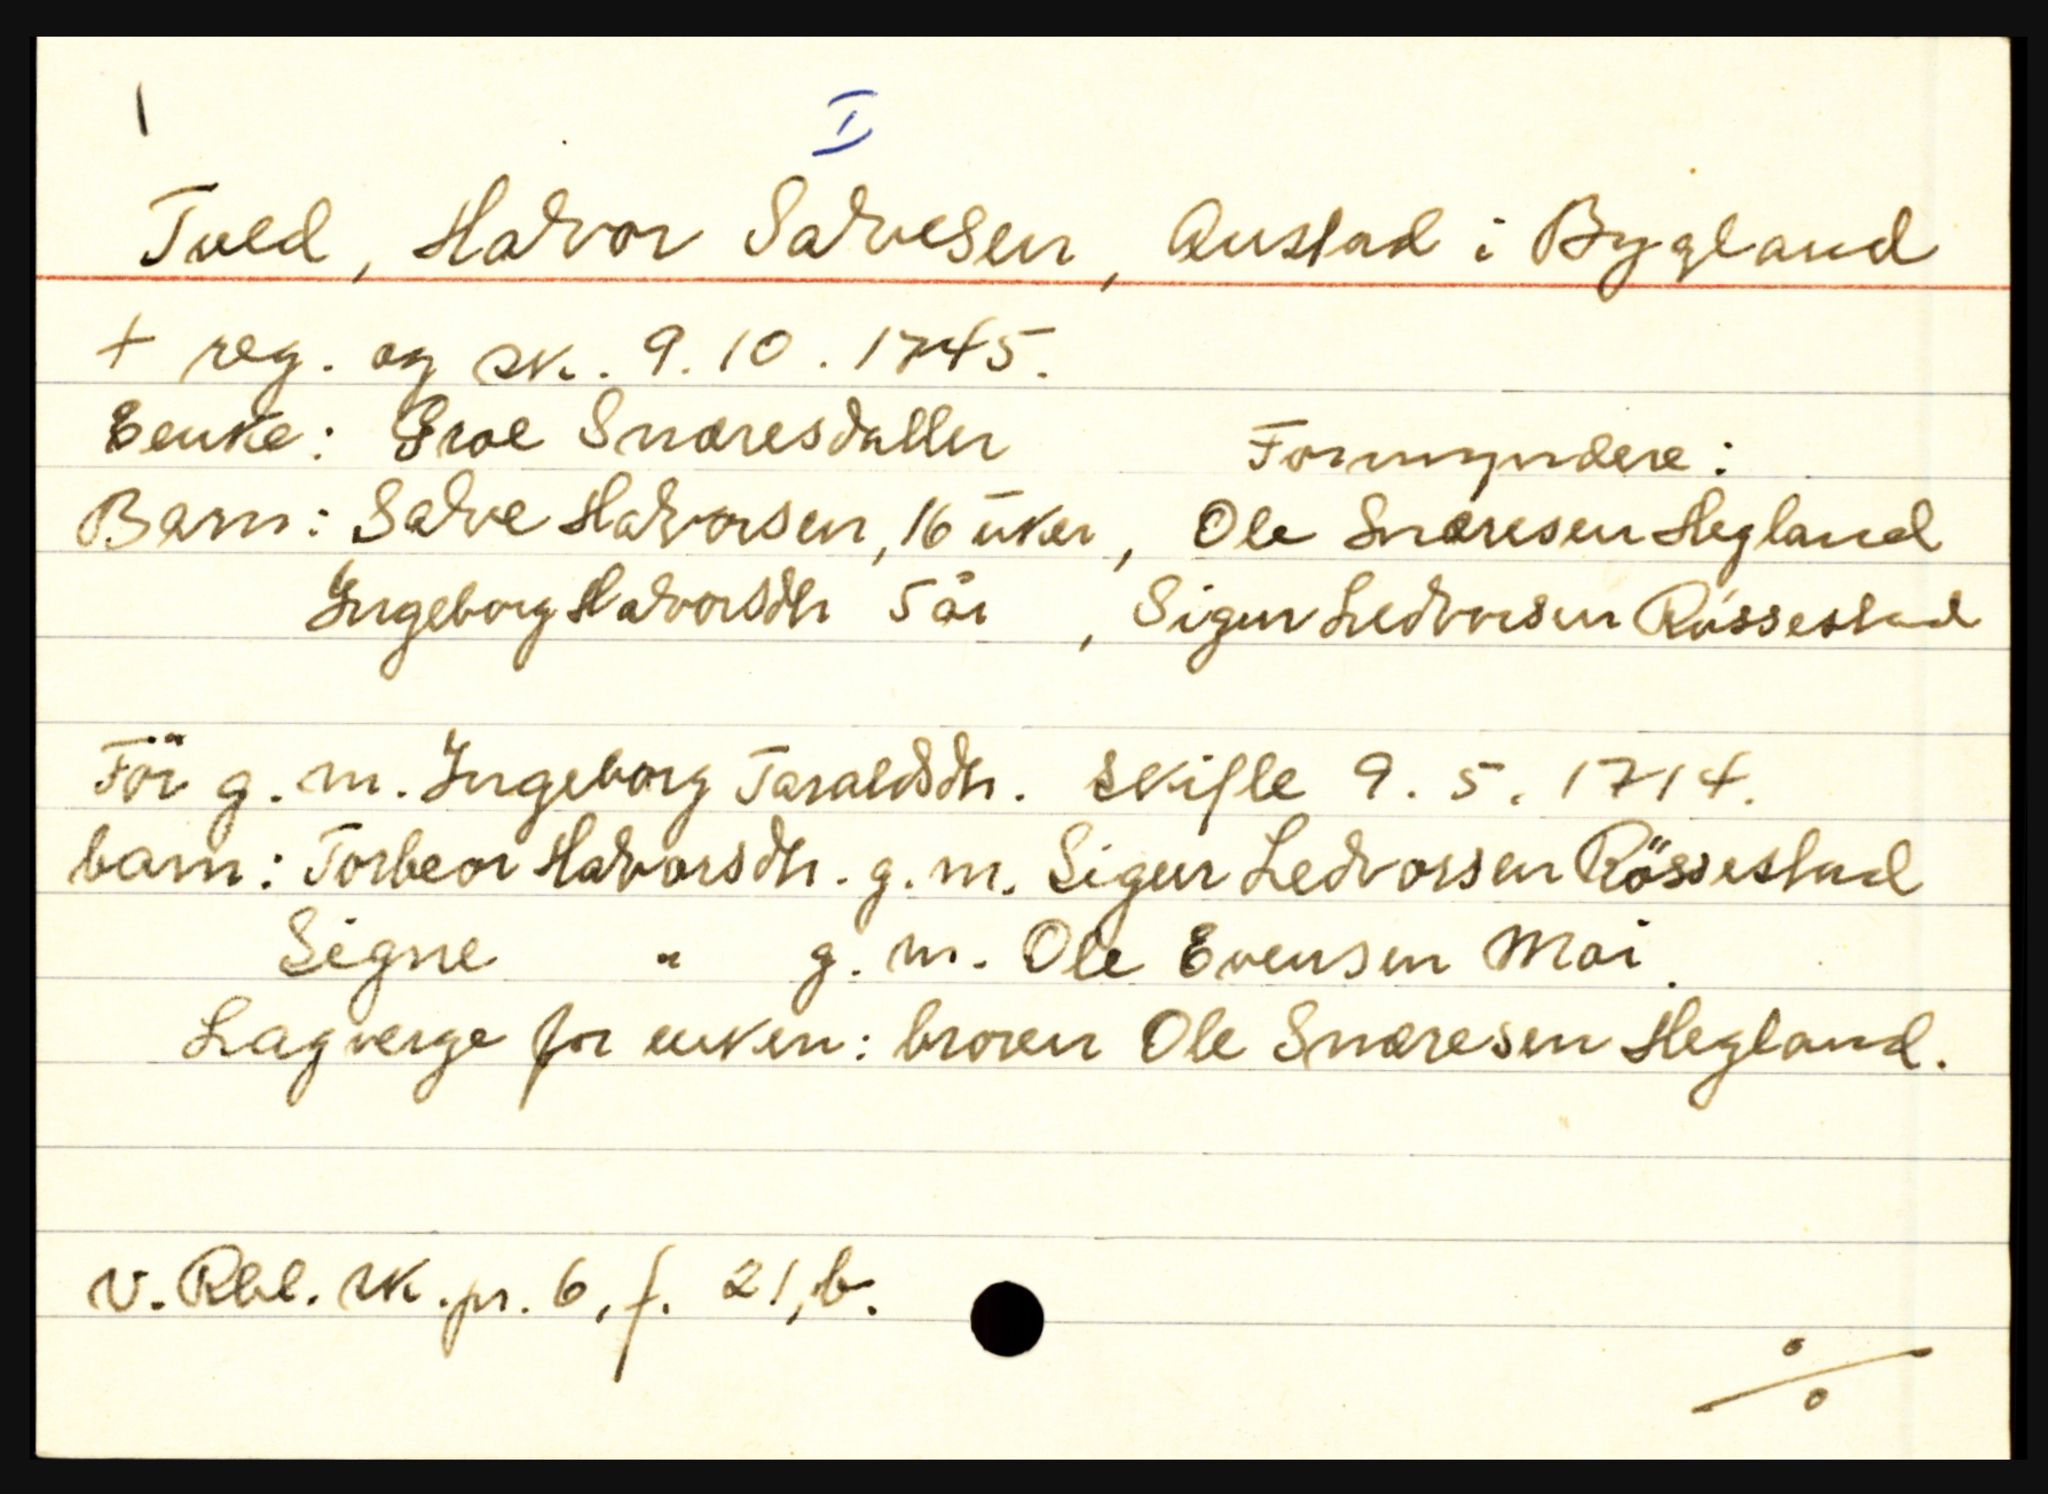 1
I
Tved, Halvor Salvesen, Austad i Bygland
+ reg. og sk. 9.10.1745.
Eenke: Groe Snaresdatter Formyndere:
Barn: Salve Halvorsen, 16 uker, Ole Snaresen Hegland
Ingeborg Halvorsdtr 5 år , Sigur Ledvorsen Røssestad
Før g.m. Ingeborg Taraldsdtr. skifte 9.5.1714.
barn: Torbeor Halvorsdtr. g.m. Sigur Ledvorsen Rössestad
Signe " g.m. Ole Evensen Moi.
Lagverge for enken: broren Ole Snaresen Hegland.
v. Rbl. sk. pr. 6, f. 21, b.
%